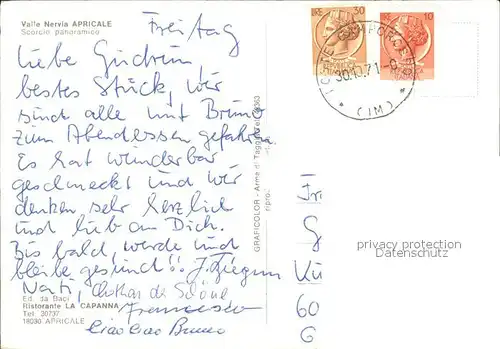 Valle Nervia APRICALE
Scorcio panoramico
Freitag
Liebe Gudrun,
bestes Stück, wir
sind alle mit Bruno
zum Abendessen gefahren
Es hat wunderbar
geschmeckt und wir
denken sehr herzlich
und lieb an Dich.
Bis bald, werde und
bleibe gesund!!
Francesco
Ciao Ciao Bruno
Ed. da Baci
Ristorante LA CAPANNA
Tel. 20737
18030 APRICALE
GRAFICOLOR - Arma di Taggia
30
10
30.10.71
(IM)
G
Kü
60
G
privacy protection
Datenschutz